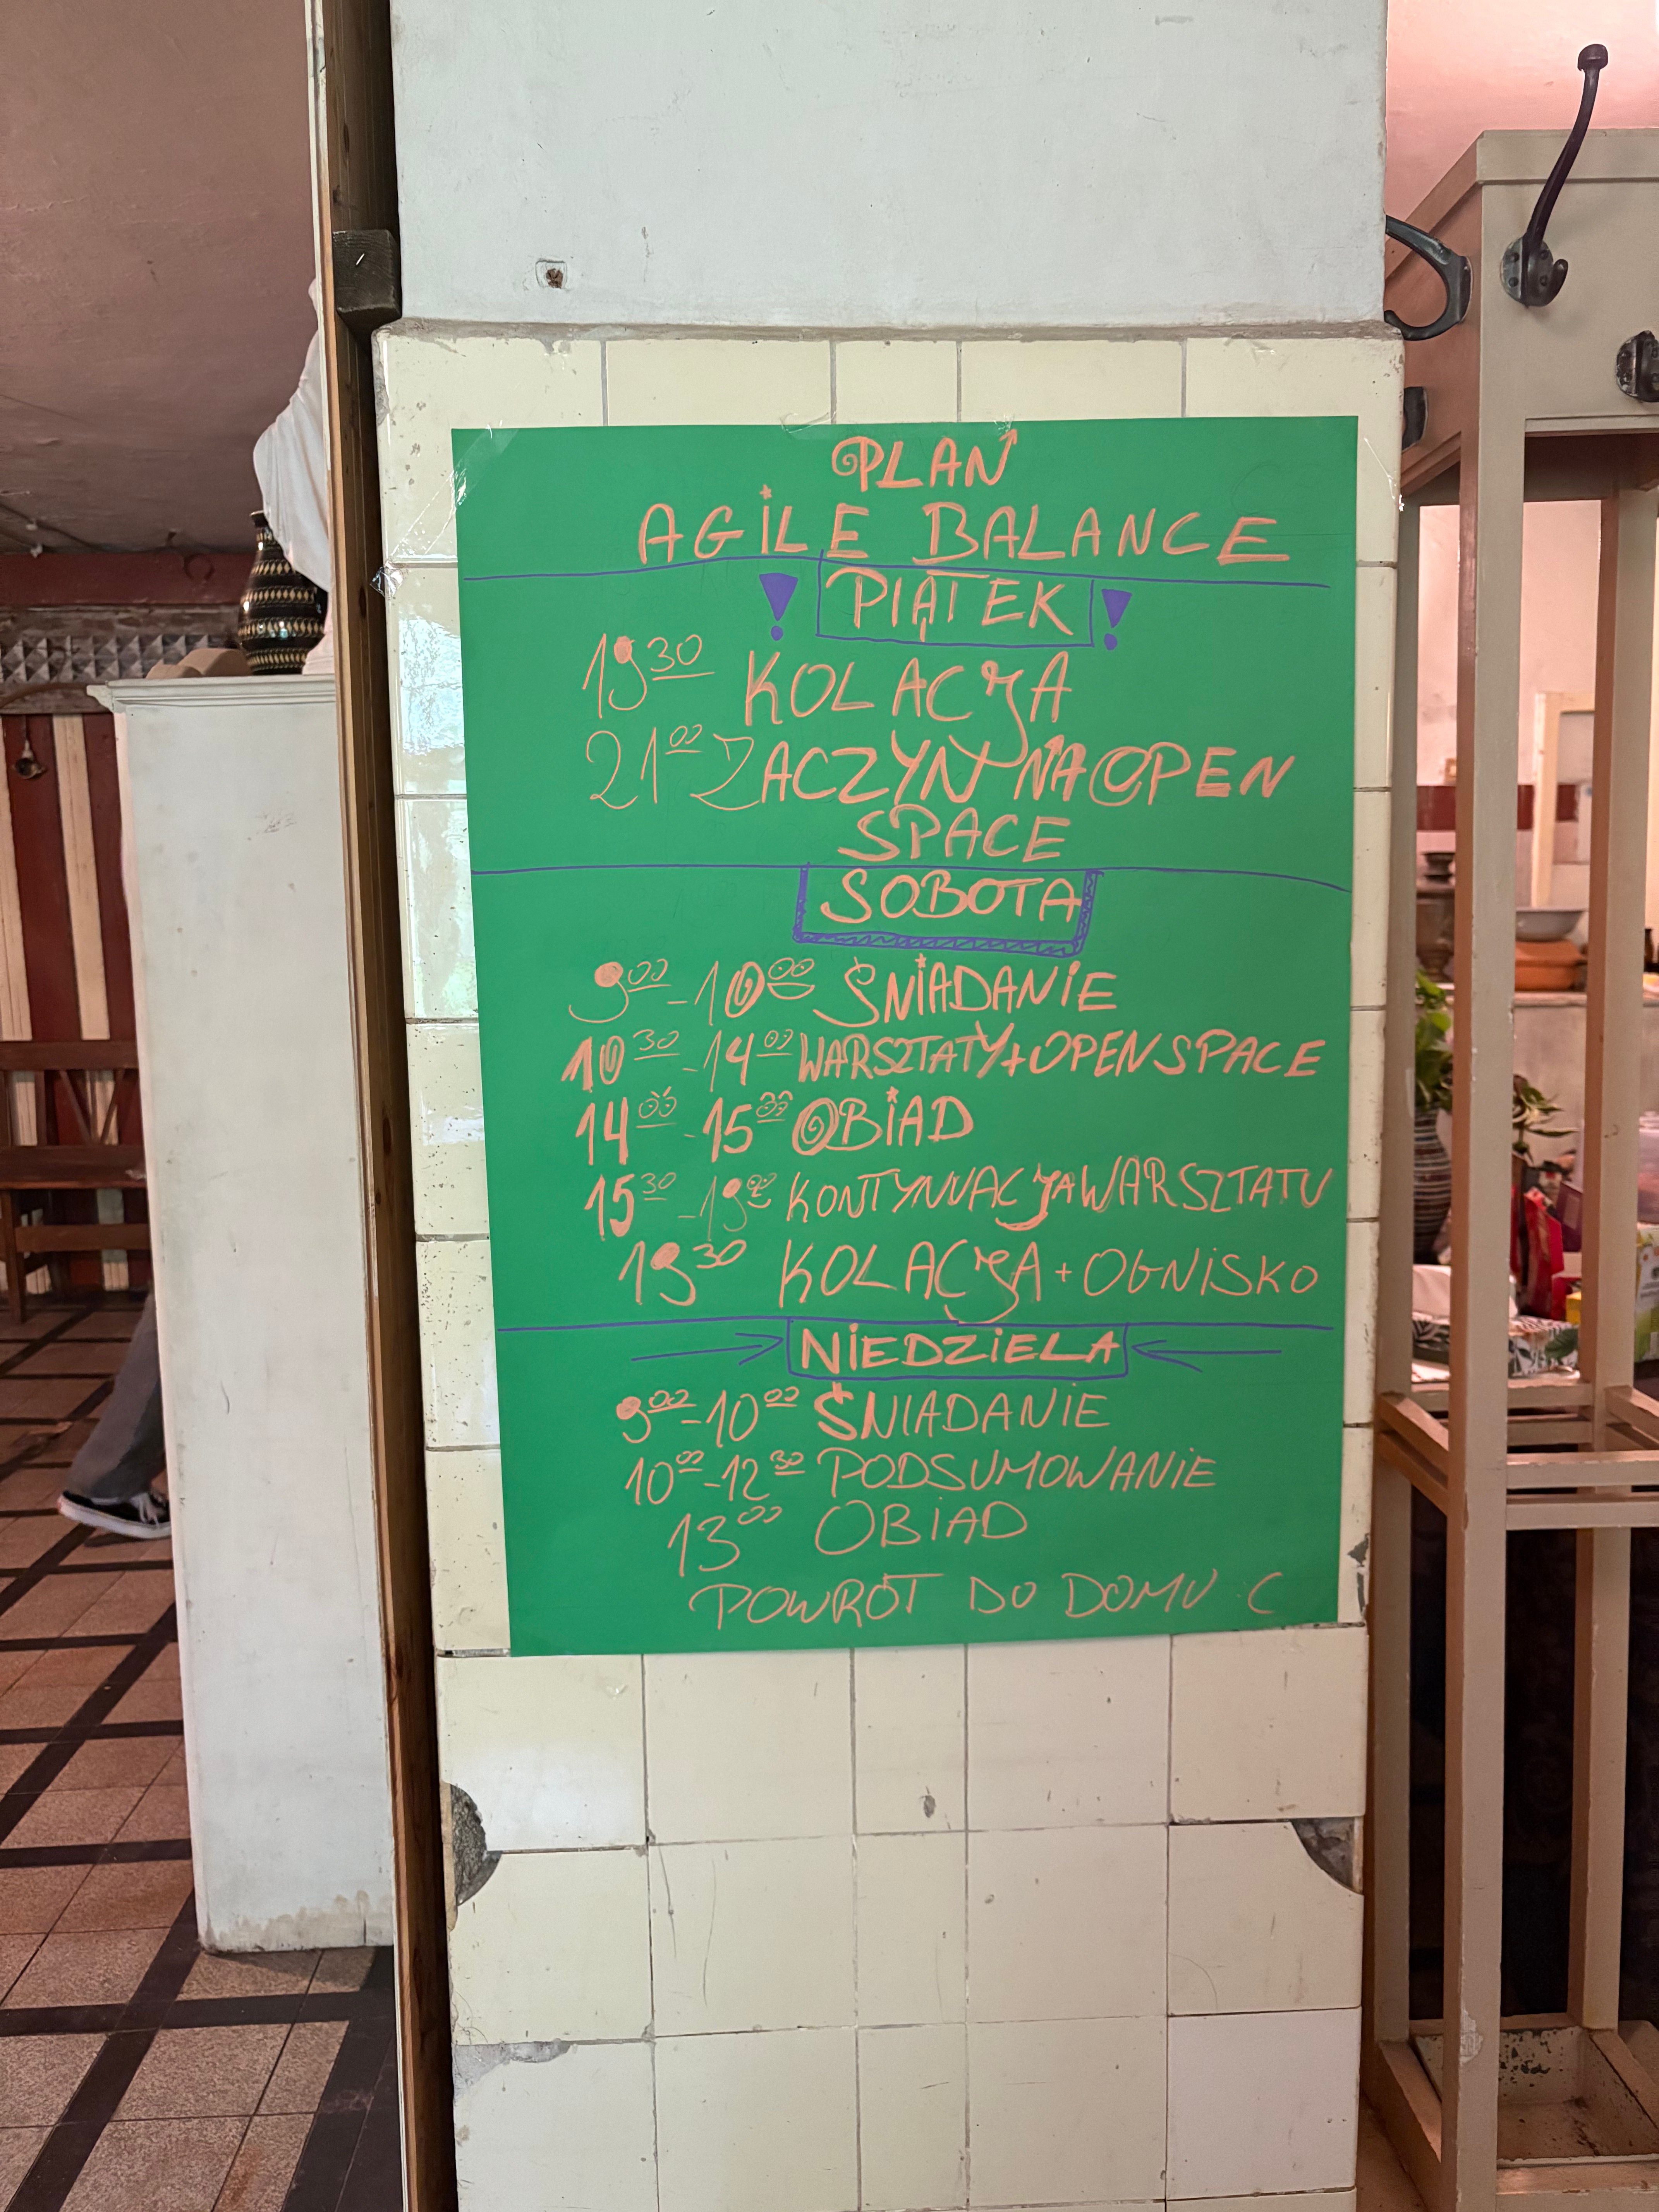 PLAN
AGILE BALANCE
! PIĄTEK !
19³⁰ KOLACJA
21⁰⁰ ZACZYN NA OPEN
SPACE
SOBOTA
9⁰⁰ - 10⁰⁰ ŚNIADANIE
10³⁰ - 14⁰⁰ WARSZTATY + OPEN SPACE
14⁰⁰ - 15³⁰ OBIAD
15³⁰ - 19⁰⁰ KONTYNUACJA WARSZTATU
19³⁰ KOLACJA + OGNISKO
→ NIEDZIELA ←
9⁰⁰ - 10⁰⁰ ŚNIADANIE
10⁰⁰ - 12³⁰ PODSUMOWANIE
13⁰⁰ OBIAD
POWRÓT DO DOMU C